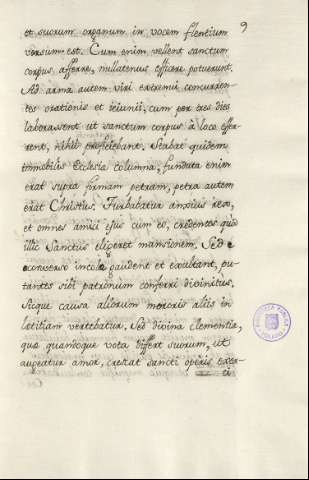 9
et suorum organum in vocem flentium
versum est. Cum enim vellent sanctum
corpus afferre, nullatenus efficere potuerunt.
Ad arma autem viri extremii concurren-
tes orationis et ieiunii, cum per tres dies
laborassent ut sanctum corpus à loco effer-
rent, nihil proficiebant. Stabat quidem
immobilis Ecclesia columna, fundata enim
erat supra firmam petram, petra autem
erat Christus. Turbabatur anxius rex,
et omnes amici ejus cum eo, credentes quod
illic Sanctus eligeret mansionem. Sed e
converso incolę gaudent et exultant, pu-
tantes sibi patronum conferri divinitus.
Sicque causa aliorum meroris aliis in
letitiam vertebatur. Sed divina clementia,
quę quamoque vota differt suorum, ut
augeatur amor, crescat sancti operis exer-
ci